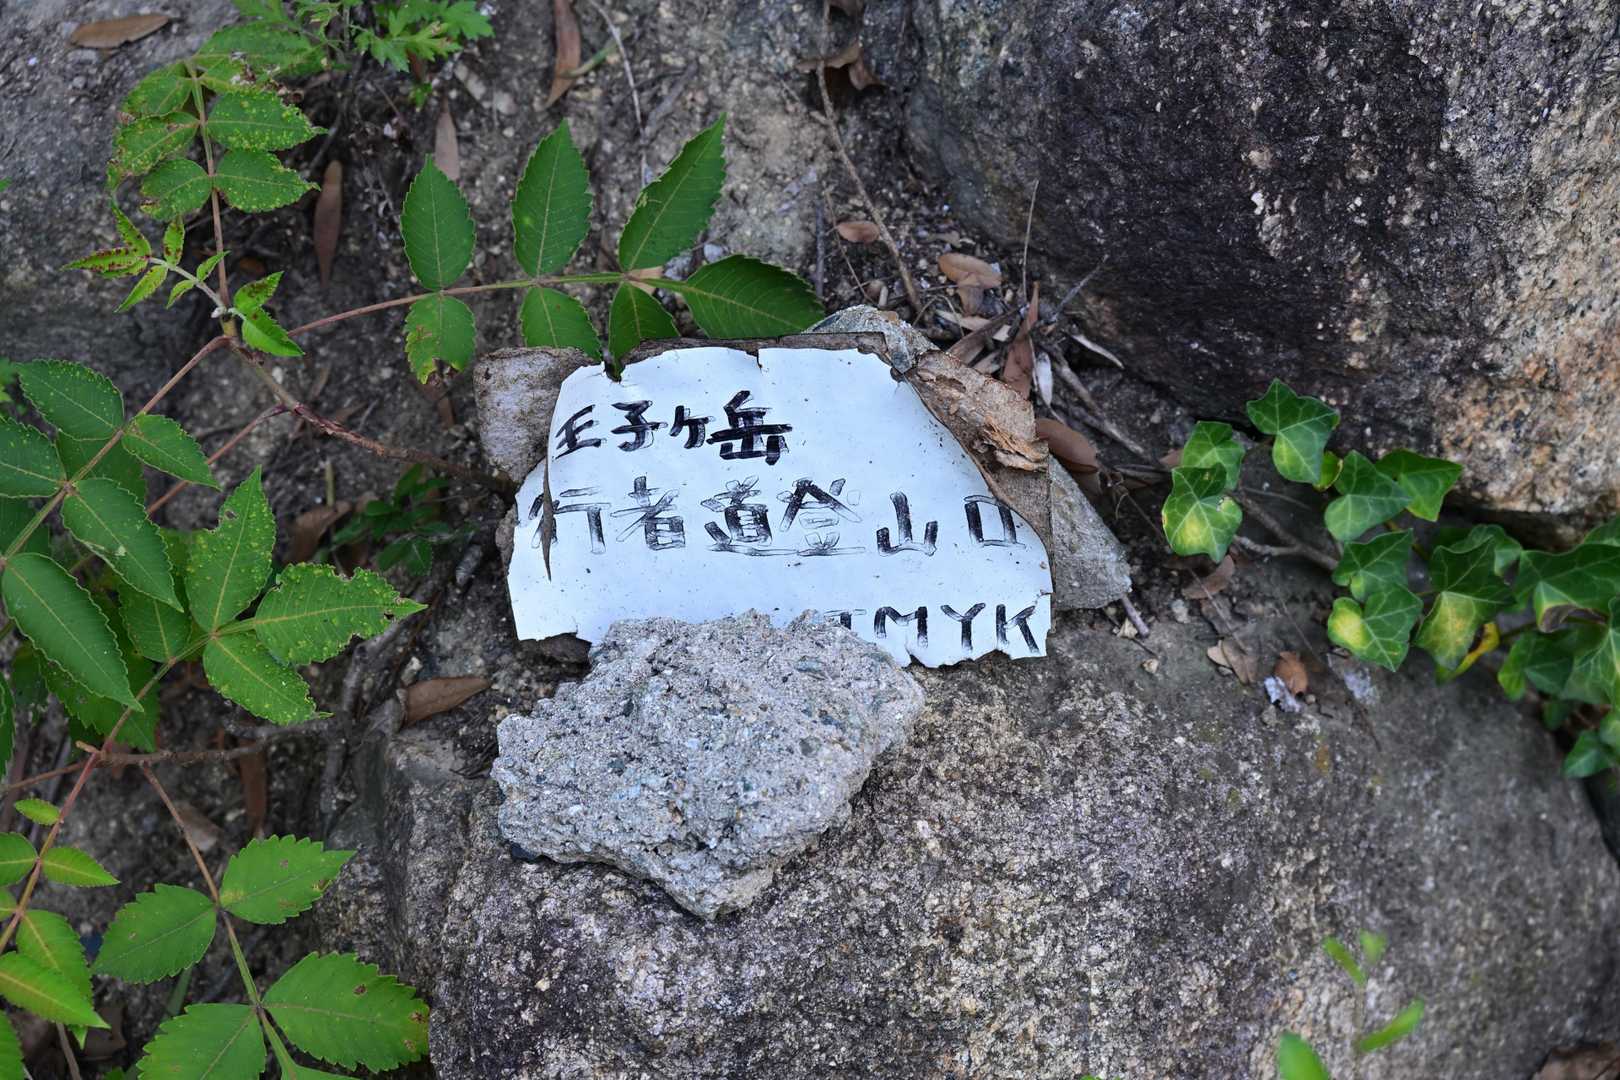 王子ヶ岳
行者道登山口
TMYK